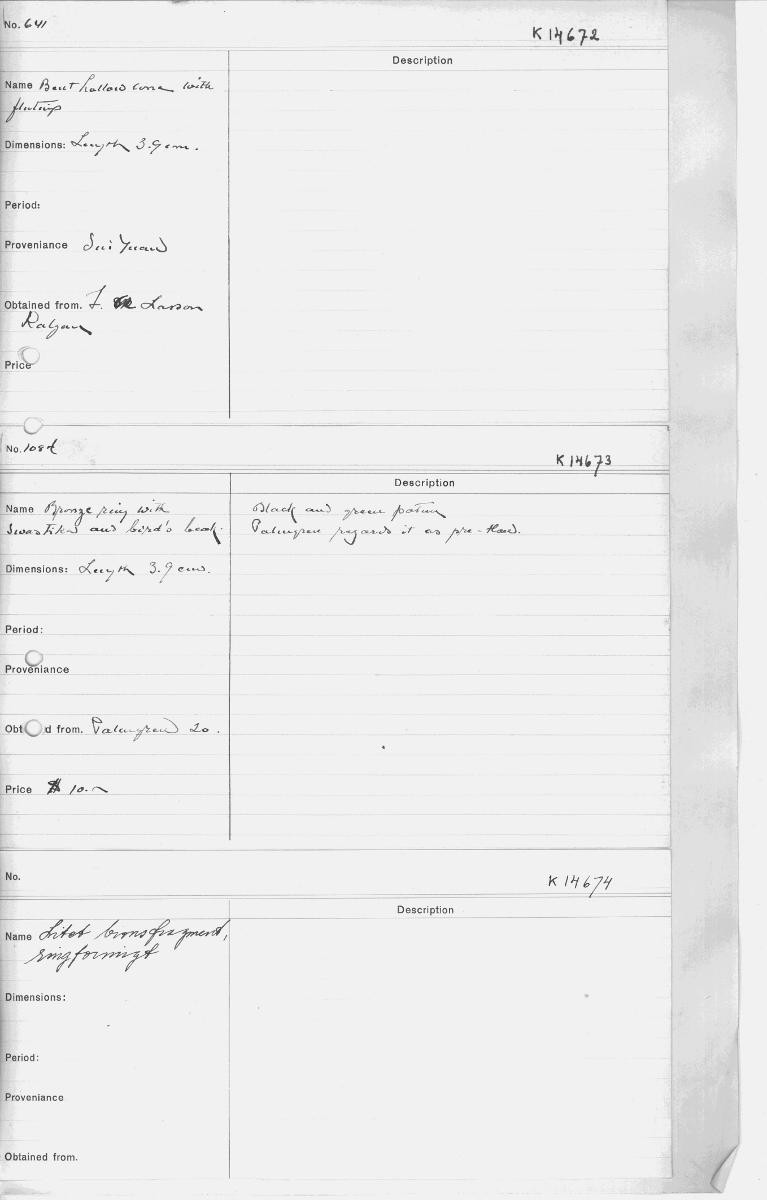 No. 641
K 14672
Description
Name Bent hollow cone with
flutings
Dimensions: Length 3.9 cm.
Period:
Proveniance Sui Yuan
Obtained from. F. Larson
Kalgan
Price
No. 108
K 14673
Description
Name Bronze ring with
Swastika and bird's beak.
Black and green patina
Palmgren regards it as pre-Han.
Dimensions: Length 3.9 cm.
Period:
Proveniance
Obt d from. Palmgren 20.
Price $ 10.-
No.
K 14674
Description
Name Litet bronsfragment,
ringformigt
Dimensions:
Period:
Proveniance
Obtained from.